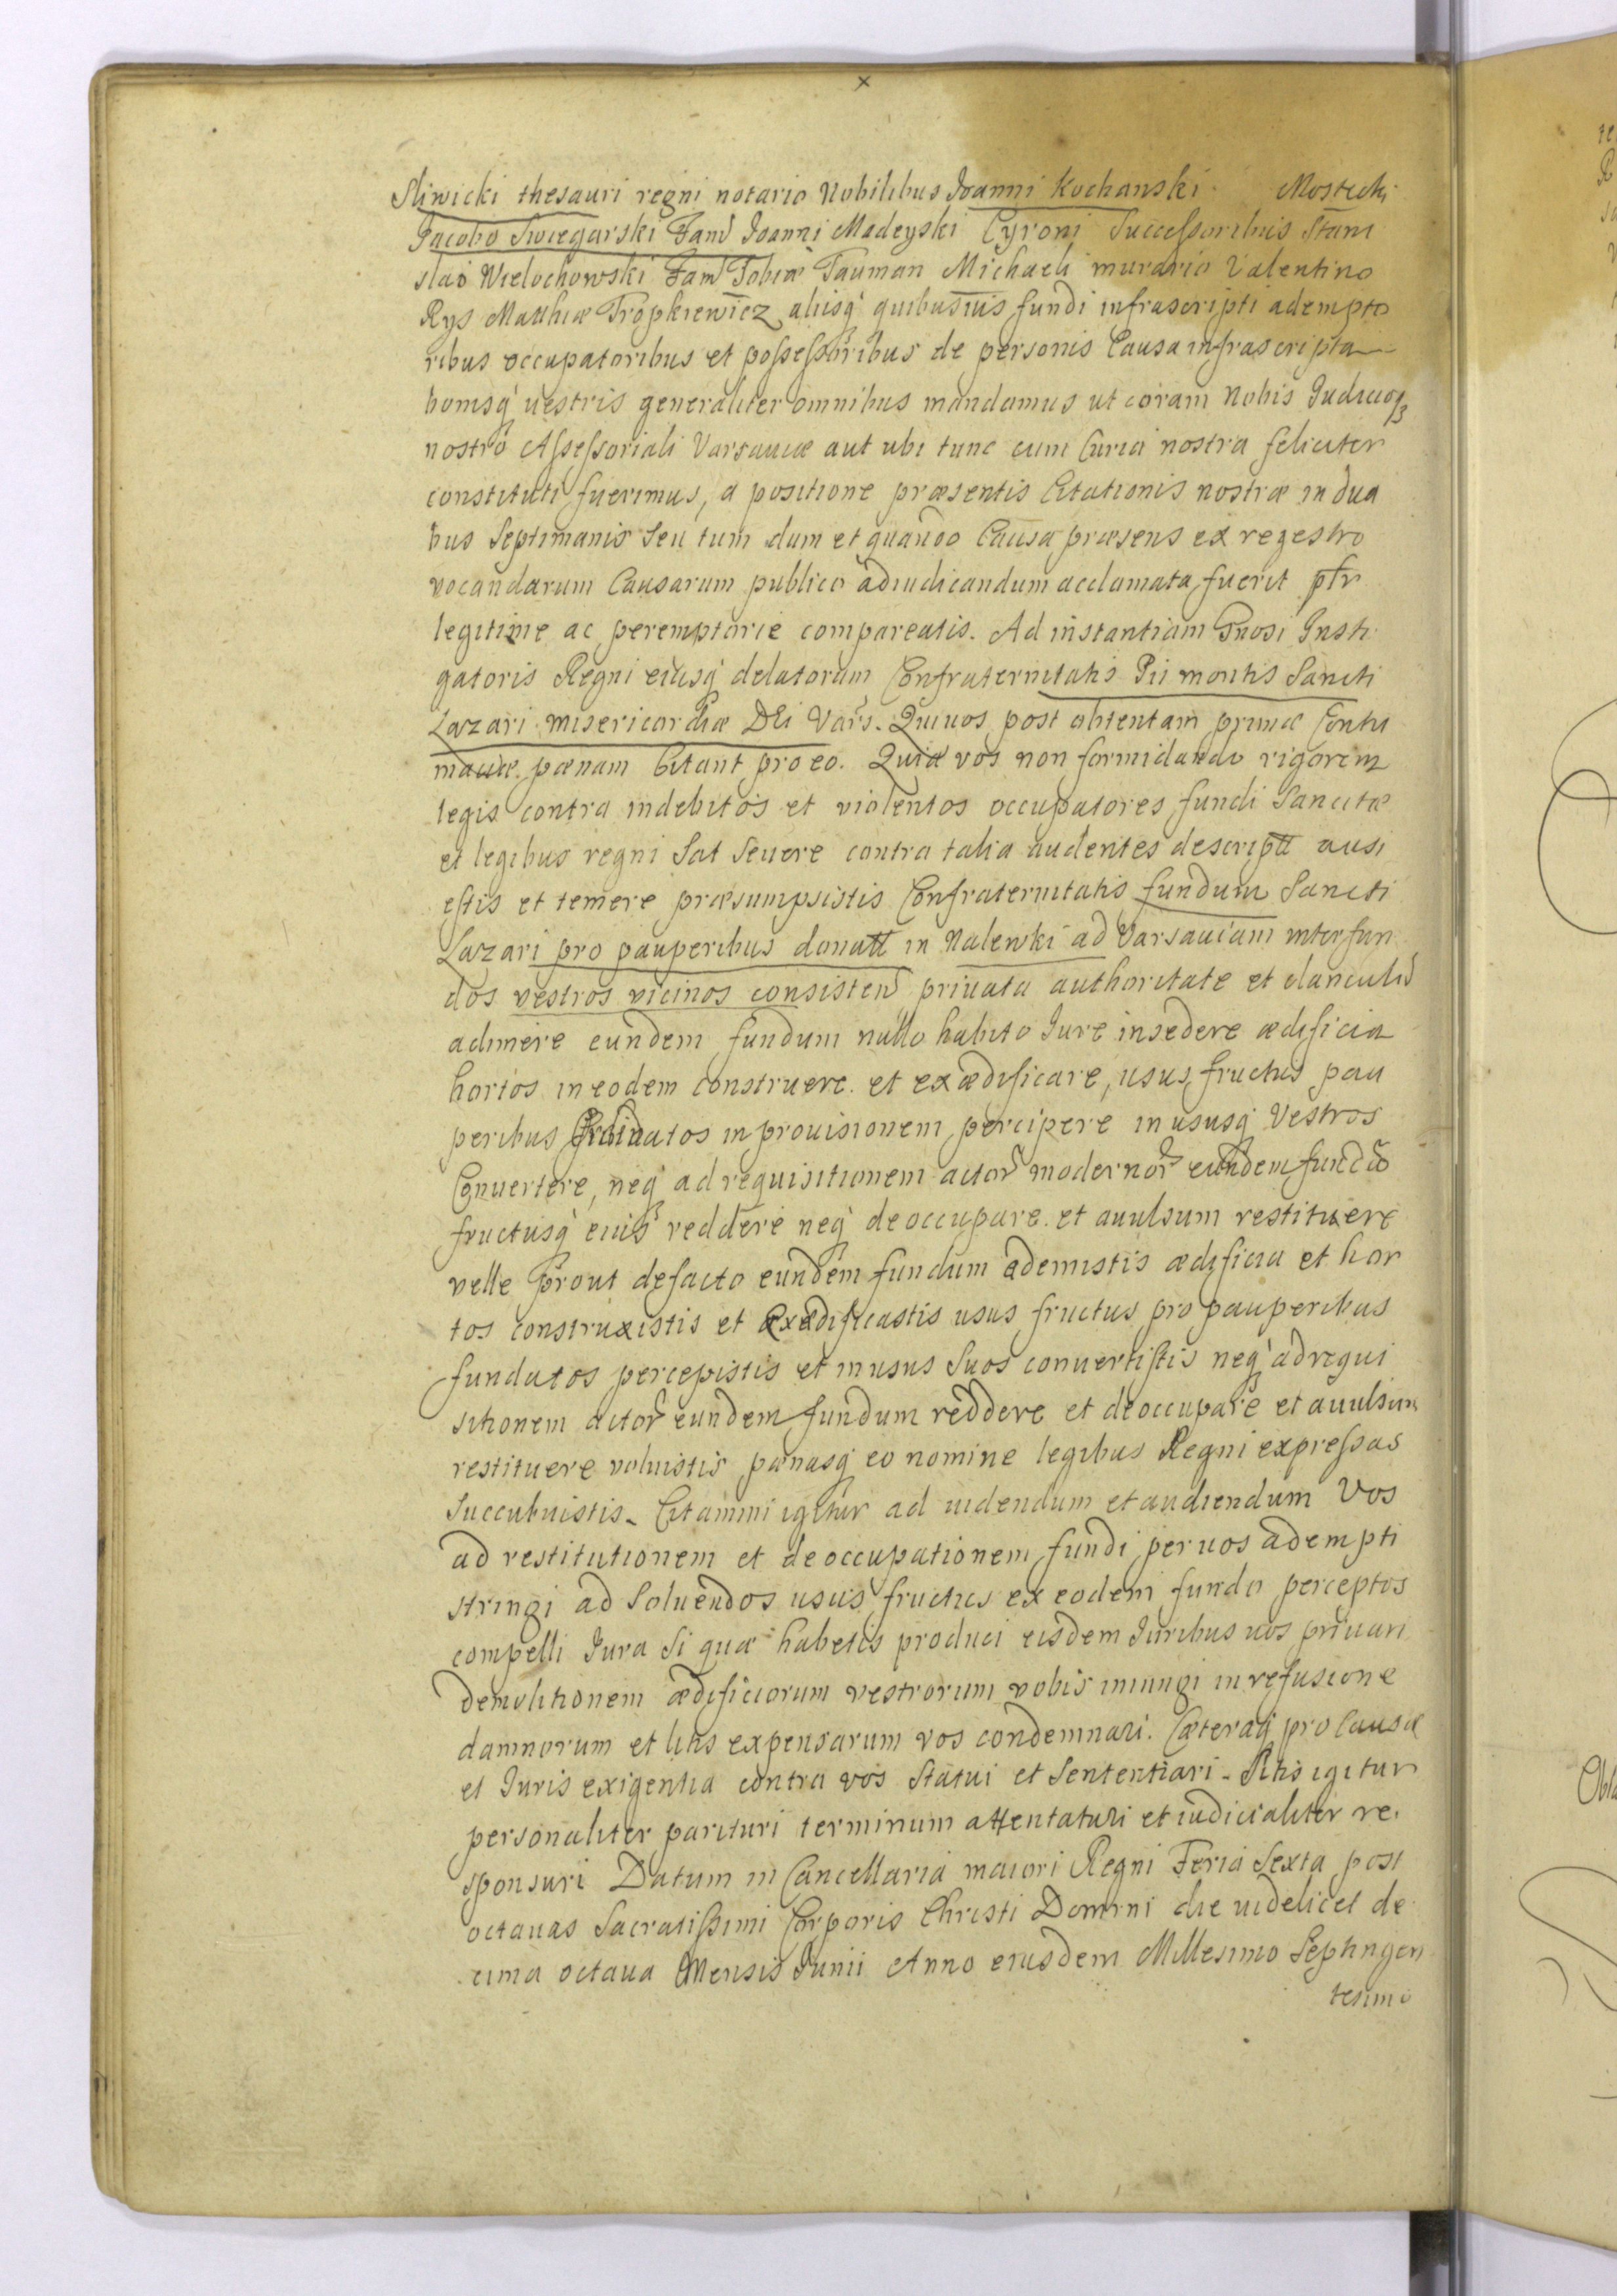 x
Sliwicki thesauri regni notario Nobilibus Joanni Kochanski Mostecki
Jacobo Swiegarski Fam̃ Joanni Madeyski Cyroni Successoribus Stani
slao Wielochowski Fam̃ Tobiæ Tauman Michaeli murario Valentino
Rys Matthiæ Tropkiewicz alijsq́ quibusuis fundi infrascripti adempto
ribus occupatoribus et possessoribus de personis Causa infrascripta
bonisq́ uestris generaliter omnibus mandamus ut coram Nobis Judicioq3
nostro Assessoriali Varsauiæ aut ubi tunc cum Curia nostra feliciter
constituti fuerimus, a positione præsentis Citationis nostræ in dua
bus Septimanis seu tum dum et quando Causa præsens ex regestro
vocandarum Causarum publico adiudicandum acclamata fuerit ptr
legitime ac peremptorie compareatis. Ad instantiam Gnosi Insti
gatoris Regni eiusq́ delatorum Confraternitatis Pii montis Sancti
Lazari misericordiæ DEi Vars. Qui uos post obtentam primæ Contu
maciæ pœnam Citant pro eo. Quia vos non formidando rigorem
legis contra indebitos et violentos occupatores fundi Sancitæ
et legibus regni Sat Seuere contra talia audentes descriptt ausi
estis et temere præsumpsistis Confraternitatis fundum Sancti
Lazari pro pauperibus donatt in Nalewki ad Varsauiam inter fun
dos vestros vicinos consisteñ priuata authoritate et clanculũ
adimere eundem fundum nullo habito Jure insedere ædificia
hortos in eodem construere et exædificare, usus fructus pau
peribus Ordinatos in prouisionem percipere in ususq́ Vestros
Conuertere, neq́ ad requisitionem actor̃ modernor̃ eundem fundũ
fructusq́ eius reddere neq́ deoccupare et auulsum restituere
velle Prout defacto eundem fundum ademistis ædificia et hor
tos construxistis et exædificastis usus fructus pro pauperibus
fundatos percepistis et in usus Suos conuertistis neq́ ad requi
sitionem actor̃ eundem fundum reddere et deoccupare et auulsum
restituere voluistis pœnasq́ eo nomine legibus Regni expressas
Succubuistis. Citamini igitur ad uidendum et audiendum Vos
ad restitutionem et deoccupationem fundi per uos adempti
stringi ad Soluendos usus fructus ex eodem fundo perceptos
compelli Jura Si quæ habetis produci eisdem Juribus uos priuari
demolitionem ædificiorum vestrorum vobis iniungi in refusione
damnorum et litis expensarum vos condemnari. Cæteraq́ pro Causæ
et Juris exigentia contra vos Statui et Sententiari. Sitis igitur
personaliter parituri terminum attentaturi et iudicialiter re
sponsuri Datum in Cancellaria maiori Regni Feria Sexta post
octauas Sacratissimi Corporis Christi Domini die uidelicet de
cima octaua Mensis Junii Anno eiusdem Millesimo Septingen
tesimo